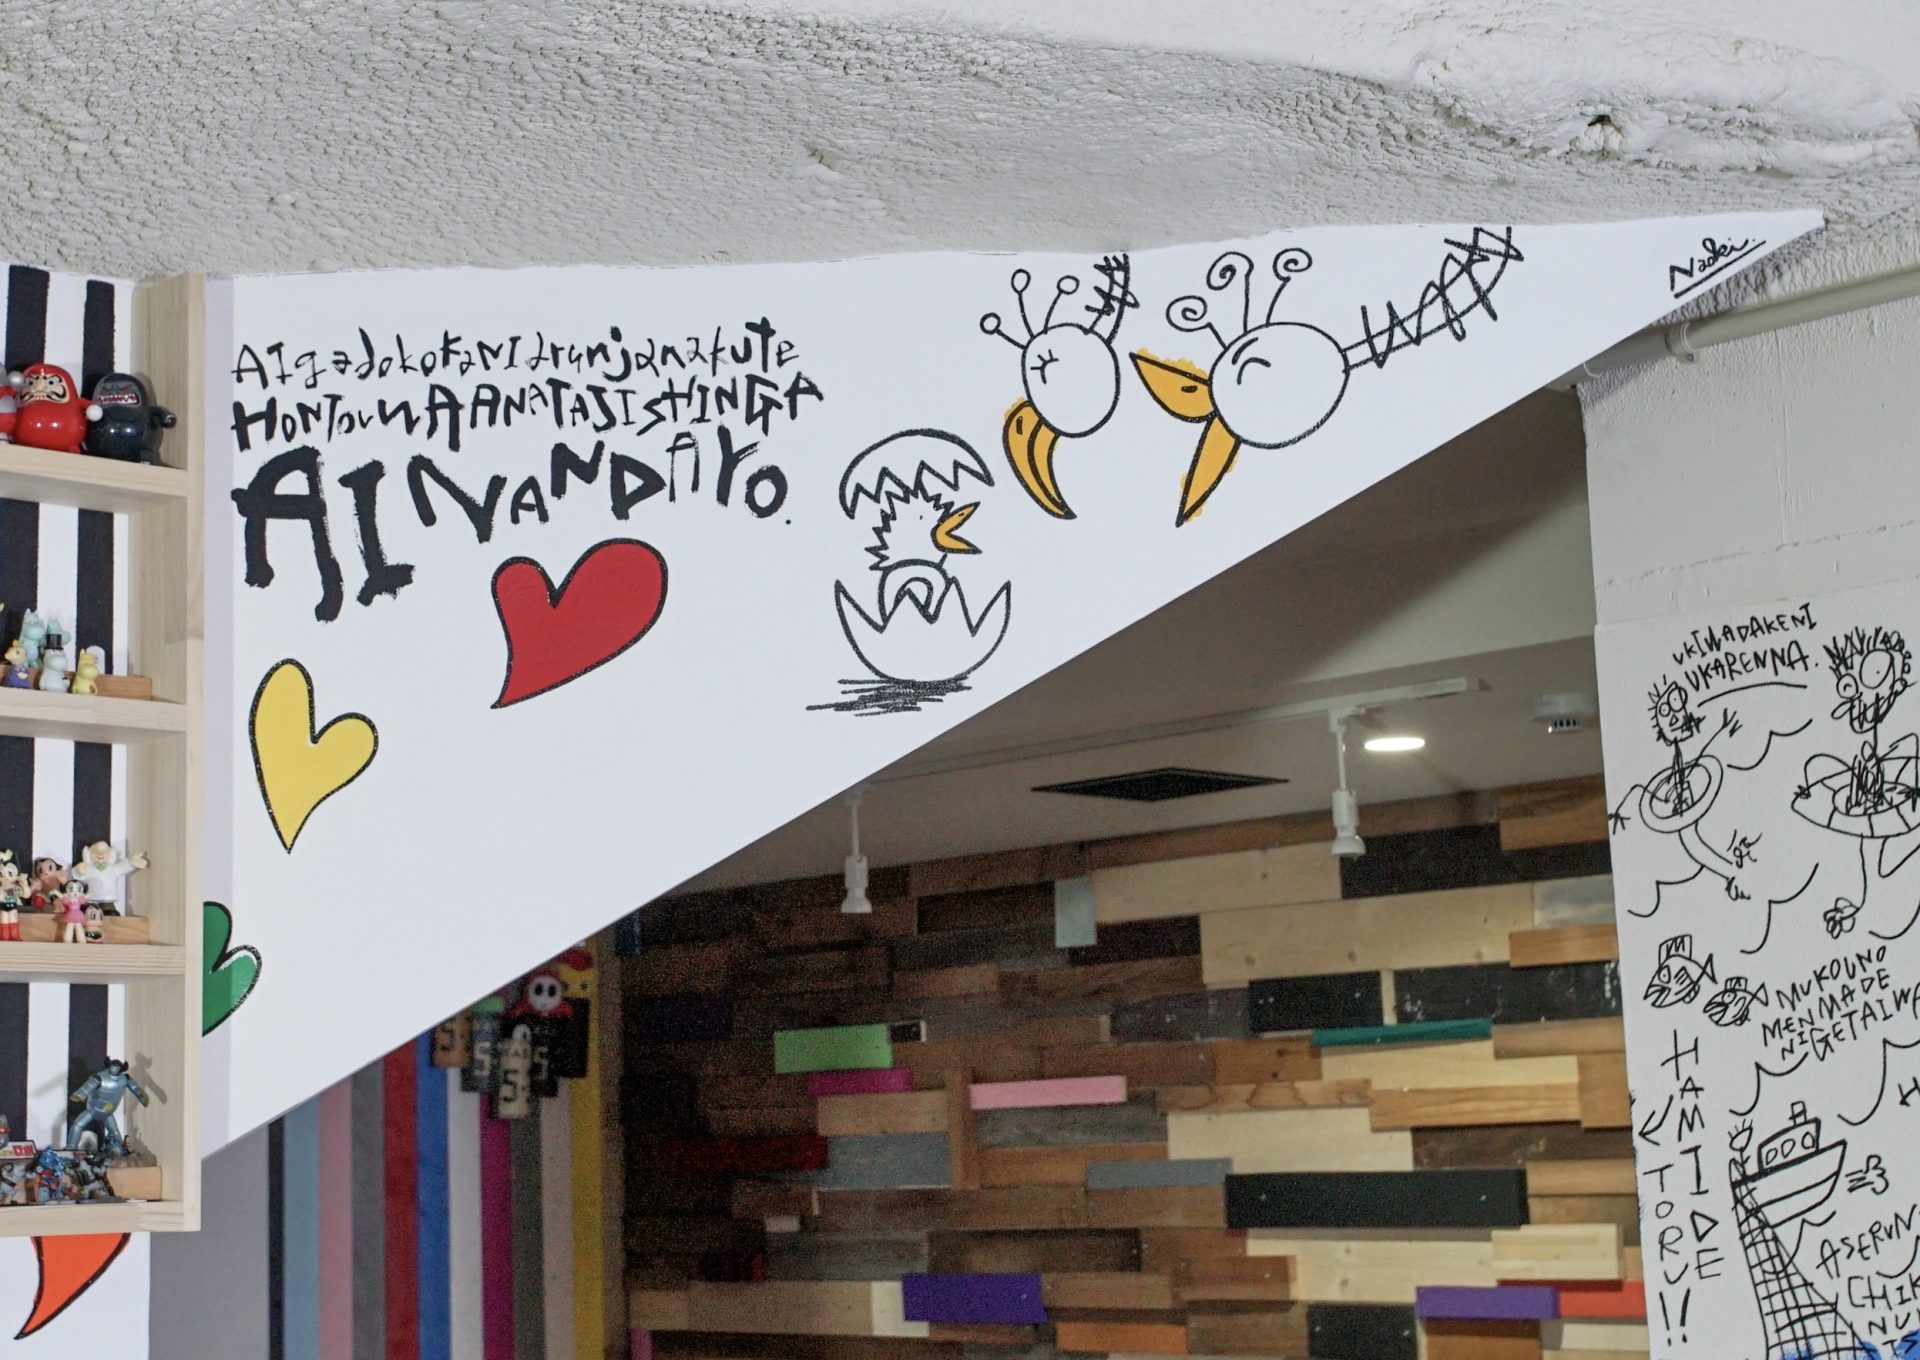 AIgadokokaNI arunjanakute
HONTOUWA ANATAJISHINGA
AI NANDAYO.
Naoki.
UKIWADAKENI
UKARENNA.
MUKOUNO
MENMADE
NIGETAIWA
HAMIDE
TORU!!
ASERUN
CHIK